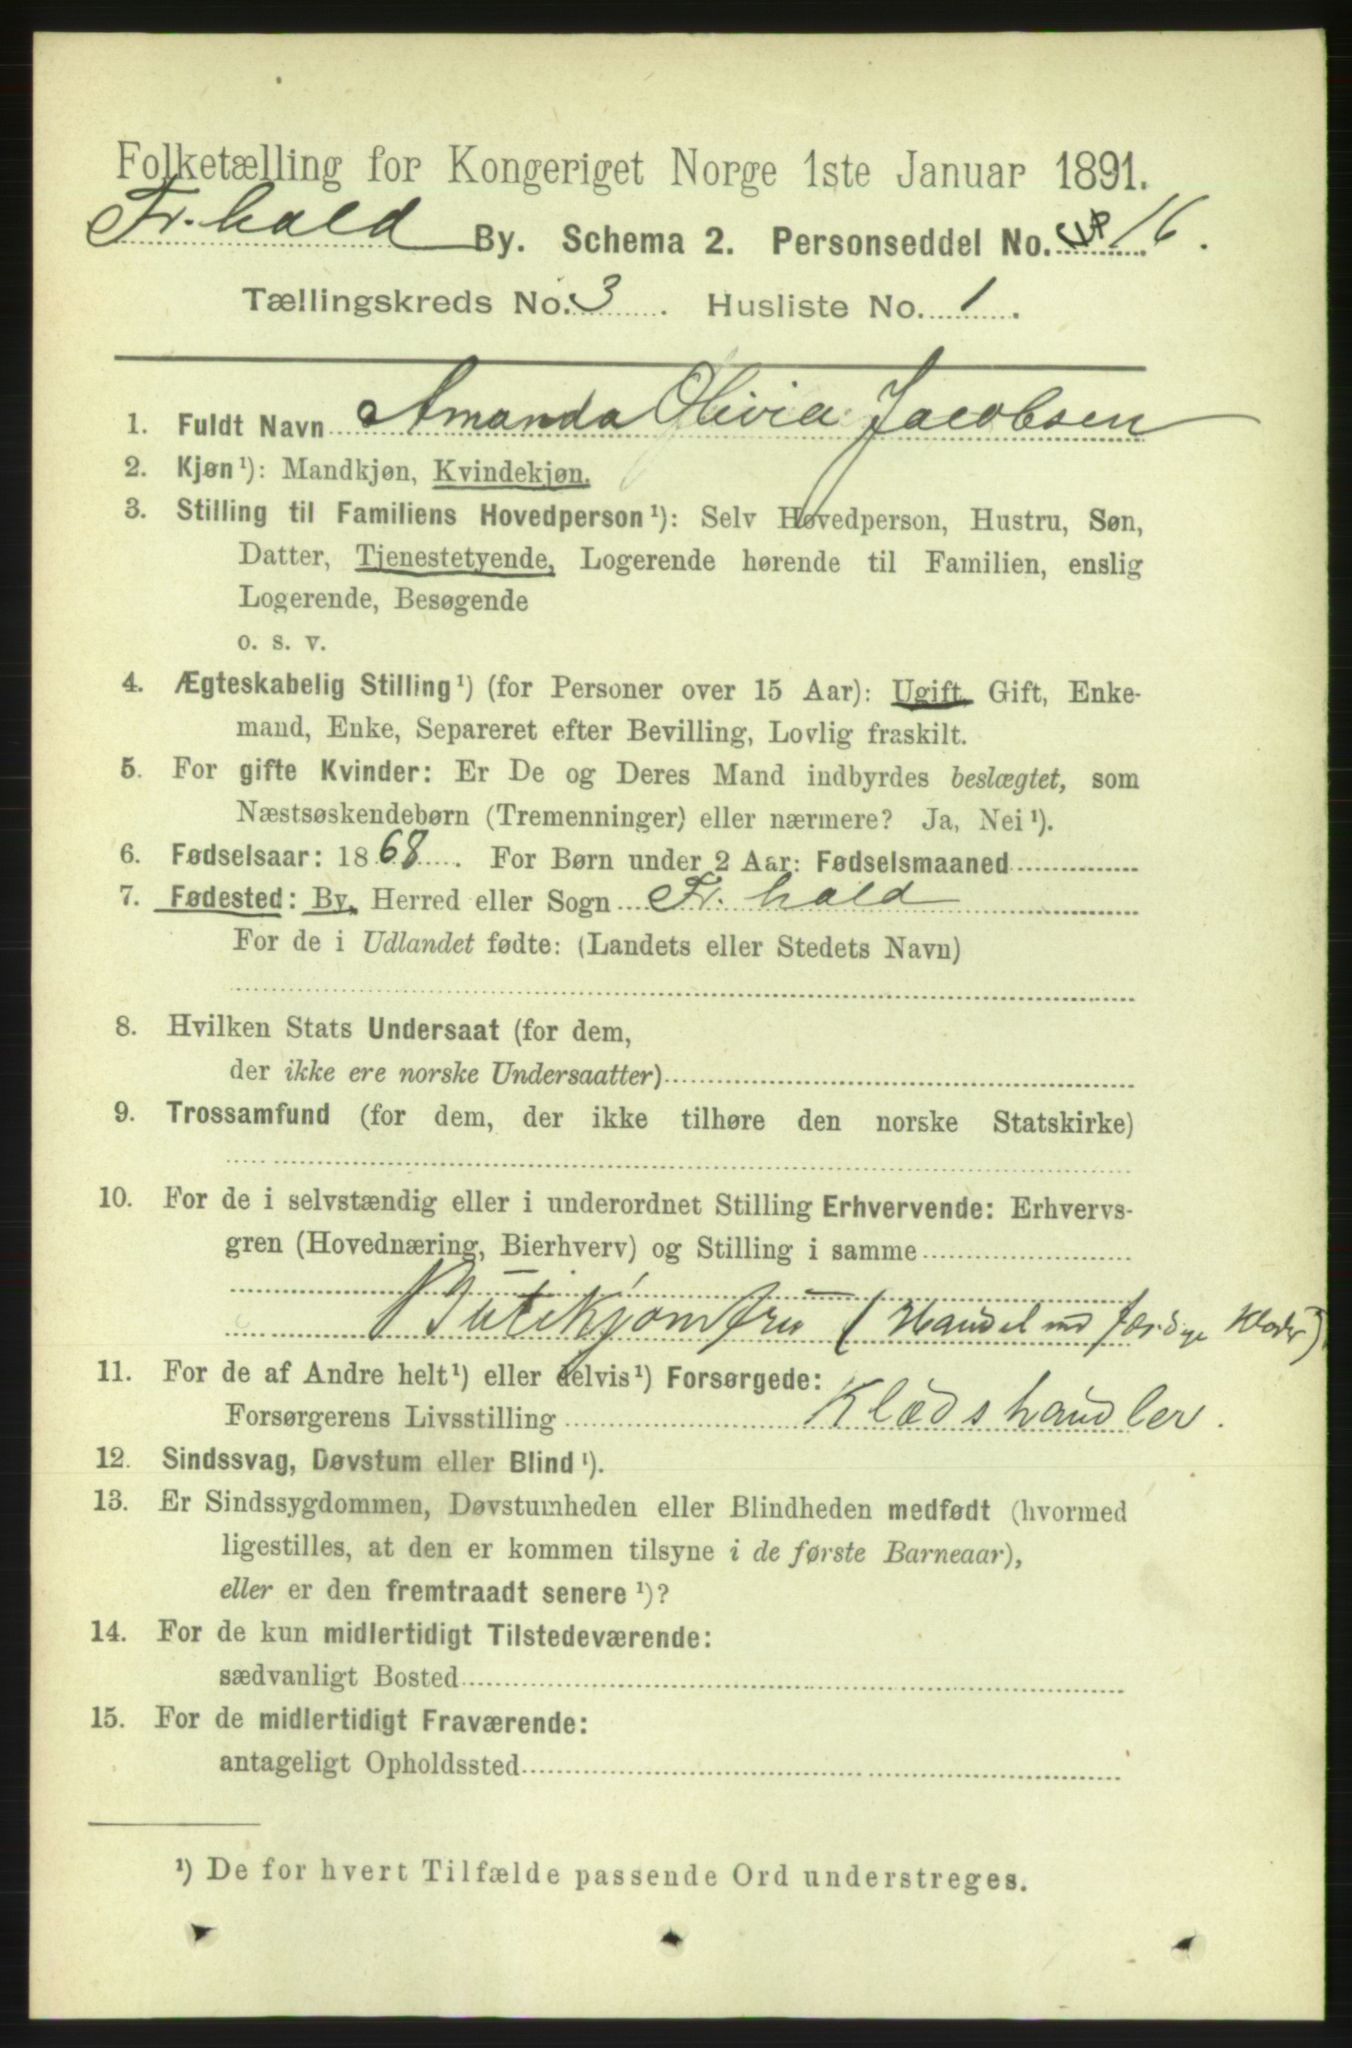 Folketælling for Kongeriget Norge 1ste Januar 1891.
Fr.hald By. Schema 2. Personseddel No. 16.
Tællingskreds No. 3. Husliste No. 1.
1. Fuldt Navn Amanda Olivia Jacobsen
2. Kjøn¹): Mandkjøn, Kvindekjøn.
3. Stilling til Familiens Hovedperson¹): Selv Hovedperson, Hustru, Søn,
Datter, Tjenestetyende, Logerende hørende til Familien, enslig
Logerende, Besøgende
o. s. v.
4. Ægteskabelig Stilling¹) (for Personer over 15 Aar): Ugift, Gift, Enke-
mand, Enke, Separeret efter Bevilling, Lovlig fraskilt.
5. For gifte Kvinder: Er De og Deres Mand indbyrdes beslægtet, som
Næstsøskendebørn (Tremenninger) eller nærmere? Ja, Nei¹).
6. Fødselsaar: 1868. For Børn under 2 Aar: Fødselsmaaned
7. Fødested: By, Herred eller Sogn Fr. hald
For de i Udlandet fødte: (Landets eller Stedets Navn)
8. Hvilken Stats Undersaat (for dem,
der ikke ere norske Undersaatter)
9. Trossamfund (for dem, der ikke tilhøre den norske Statskirke)
10. For de i selvstændig eller i underordnet Stilling Erhvervende: Erhvervs-
gren (Hovednæring, Bierhverv) og Stilling i samme
Butikjomfru (Handel md færdige Klæder)
11. For de af Andre helt¹) eller delvis¹) Forsørgede:
Forsørgerens Livsstilling Klædshandler.
12. Sindssvag, Døvstum eller Blind¹).
13. Er Sindssygdommen, Døvstumheden eller Blindheden medfødt (hvormed
ligestilles, at den er kommen tilsyne i de første Barneaar),
eller er den fremtraadt senere¹)?
14. For de kun midlertidigt Tilstedeværende:
sædvanligt Bosted
15. For de midlertidigt Fraværende:
antageligt Opholdssted
¹) De for hvert Tilfælde passende Ord understreges.